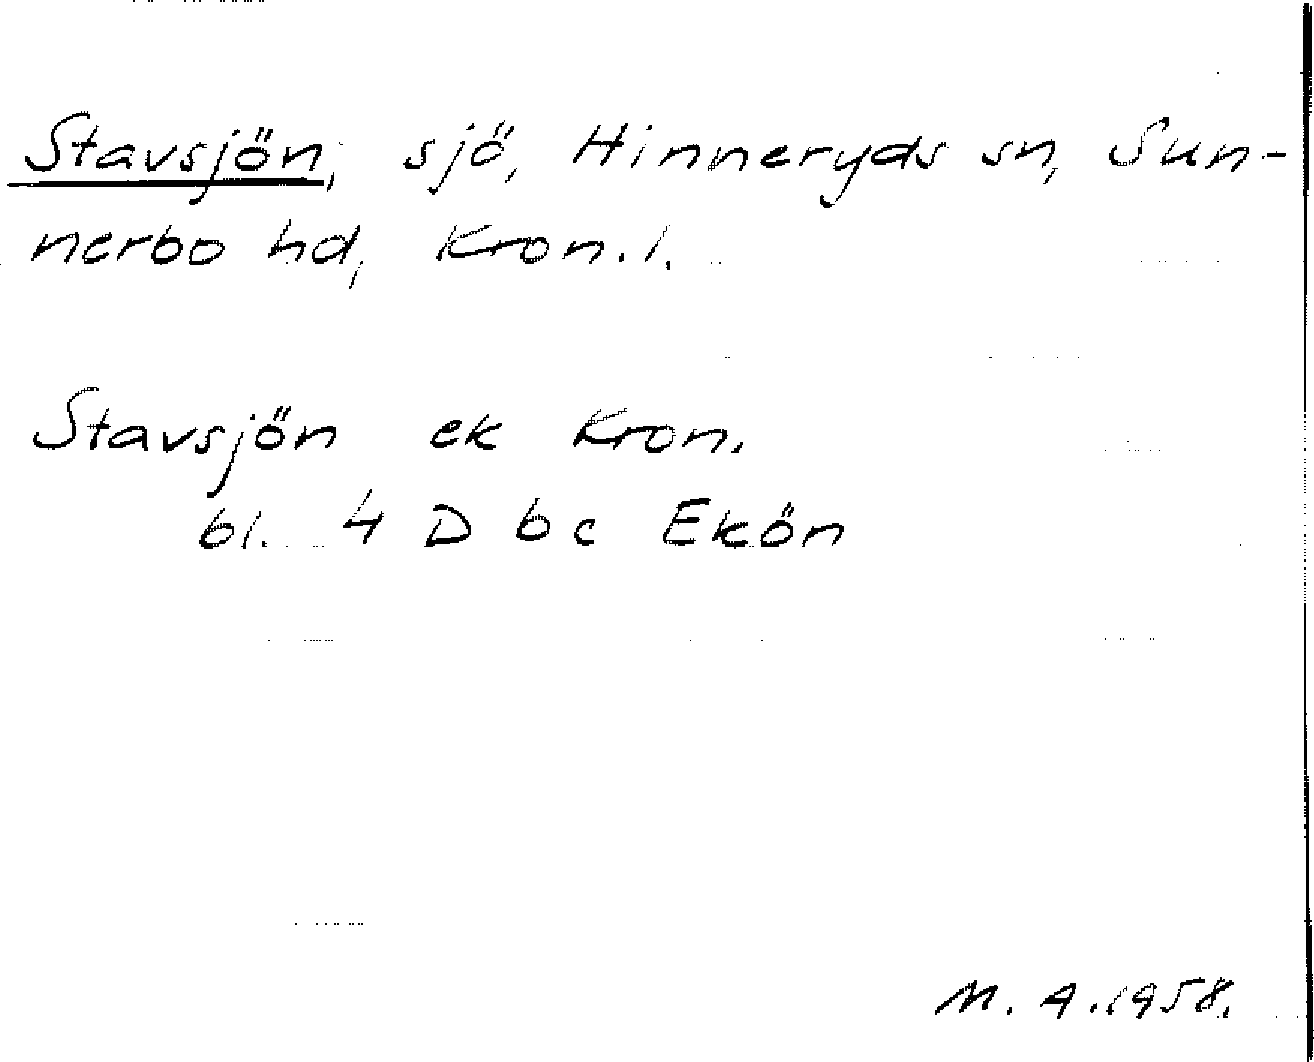 Stavsjön, sjö, Hinneryds sn, Sun-
nerbo hd, Kron. l.
Stavsjön ek Kron.
bl. 4 D b c Ekön
M. A. 1958.